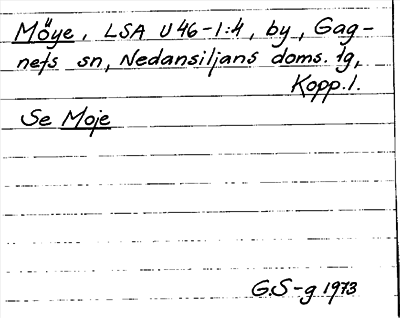 Möye, LSA U46-1:4, by, Gag-
nefs sn, Nedansiljans doms. tg,
Kopp. l.
Se Moje
G.S-g 1973